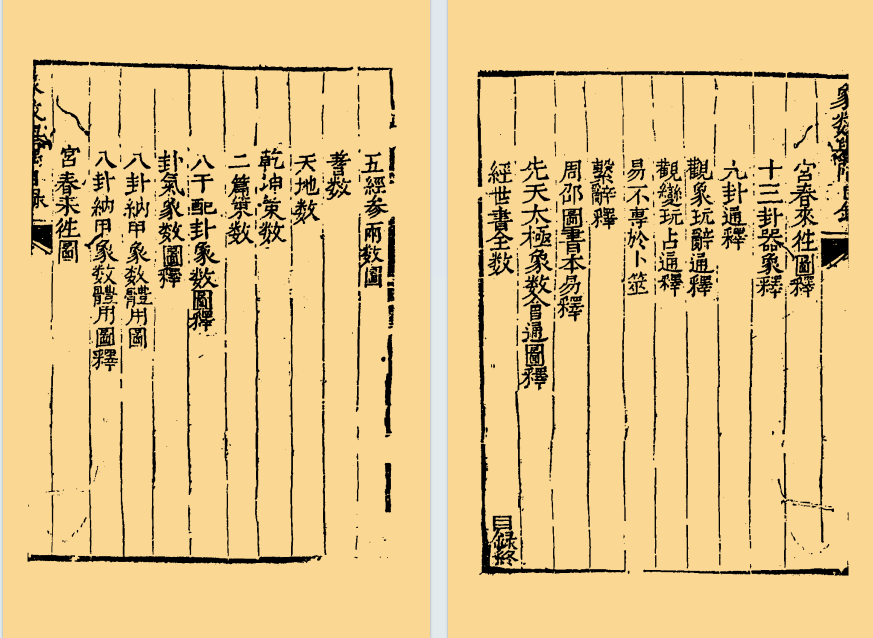 五經参兩数圖
蓍数
天地数
乾坤策数
二篇策数
八干配卦象数圖釋
卦氣象数圖釋
八卦納甲象数體用圖
八卦納甲象数體用圖釋
宮春來徃圖
宮春來徃圖釋
十三卦器象釋
九卦通釋
觀象玩辭通釋
觀變玩占通釋
易不專於卜筮
繫辭釋
周邵圖書本易釋
先天太極象数會通圖釋
經世書全数
目錄終